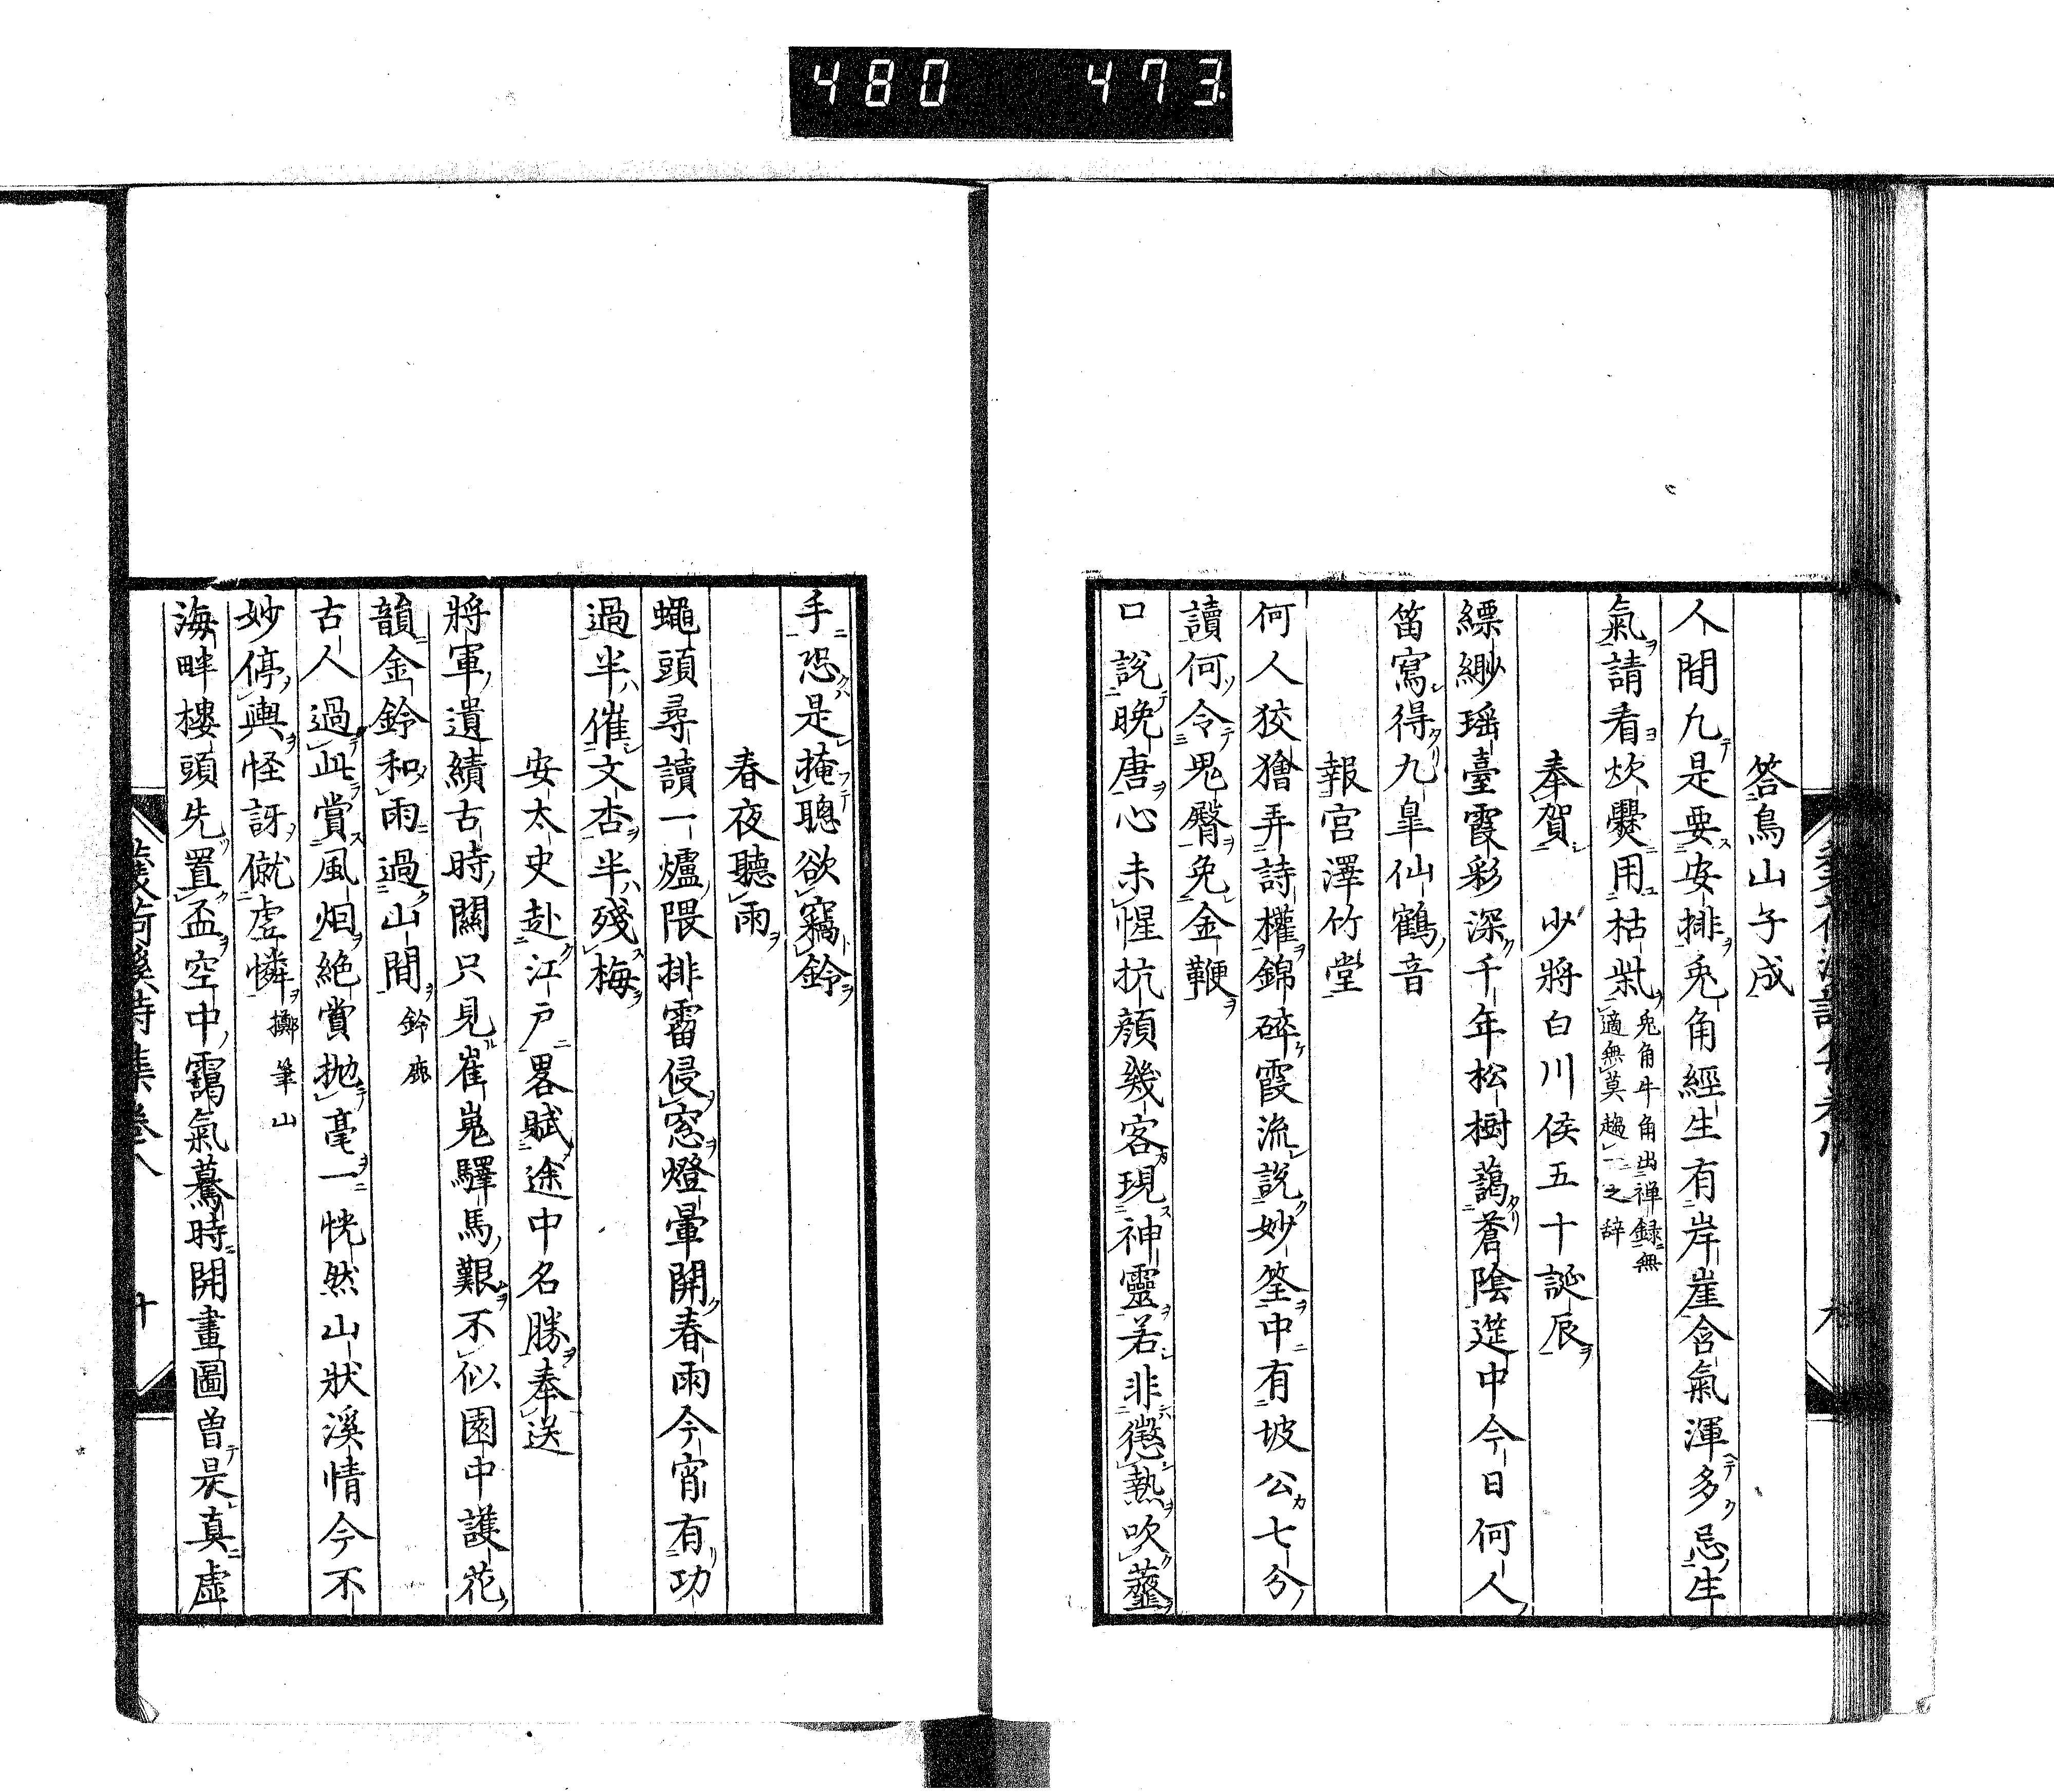 480 473
答鳥山子成
人間九是要安排兎角經生有岸崖含氣渾多忌生
氣請看炊爨用枯㭰兎角牛角出禅録無
適無莫趨一之辞
奉賀 少將白川侯五十誕辰
縹緲瑶臺霞彩深千年松樹藹蒼陰筵中今日何人
笛寫得九皐仙鶴音
報宮澤竹堂
何人狡獪弄詩權錦碎霞流說妙筌中有坡公七分
讀何令鬼臀免金鞭
口說晩唐心未惺抗顔幾客現神靈若非懲熱吹虀
手恐是掩聰欲竊鈴
春夜聽雨
蠅頭尋讀一爐隈排霤侵窓燈暈開春雨今宵有功
過半催文杏半殘梅
安太史赴江戸畧賦途中名勝奉送
將軍遺績古時關只見崔嵬驛馬艱不似園中護花
韻金鈴和雨過山間鈴鹿
古人過此賞風烟絶賞抛毫一恍然山狀溪情今不
妙停輿怪訝僦虚憐擲筆山
海畔樓頭先置盃空中靄氣驀時開畫圖曽是真虚
詩集卷八
十